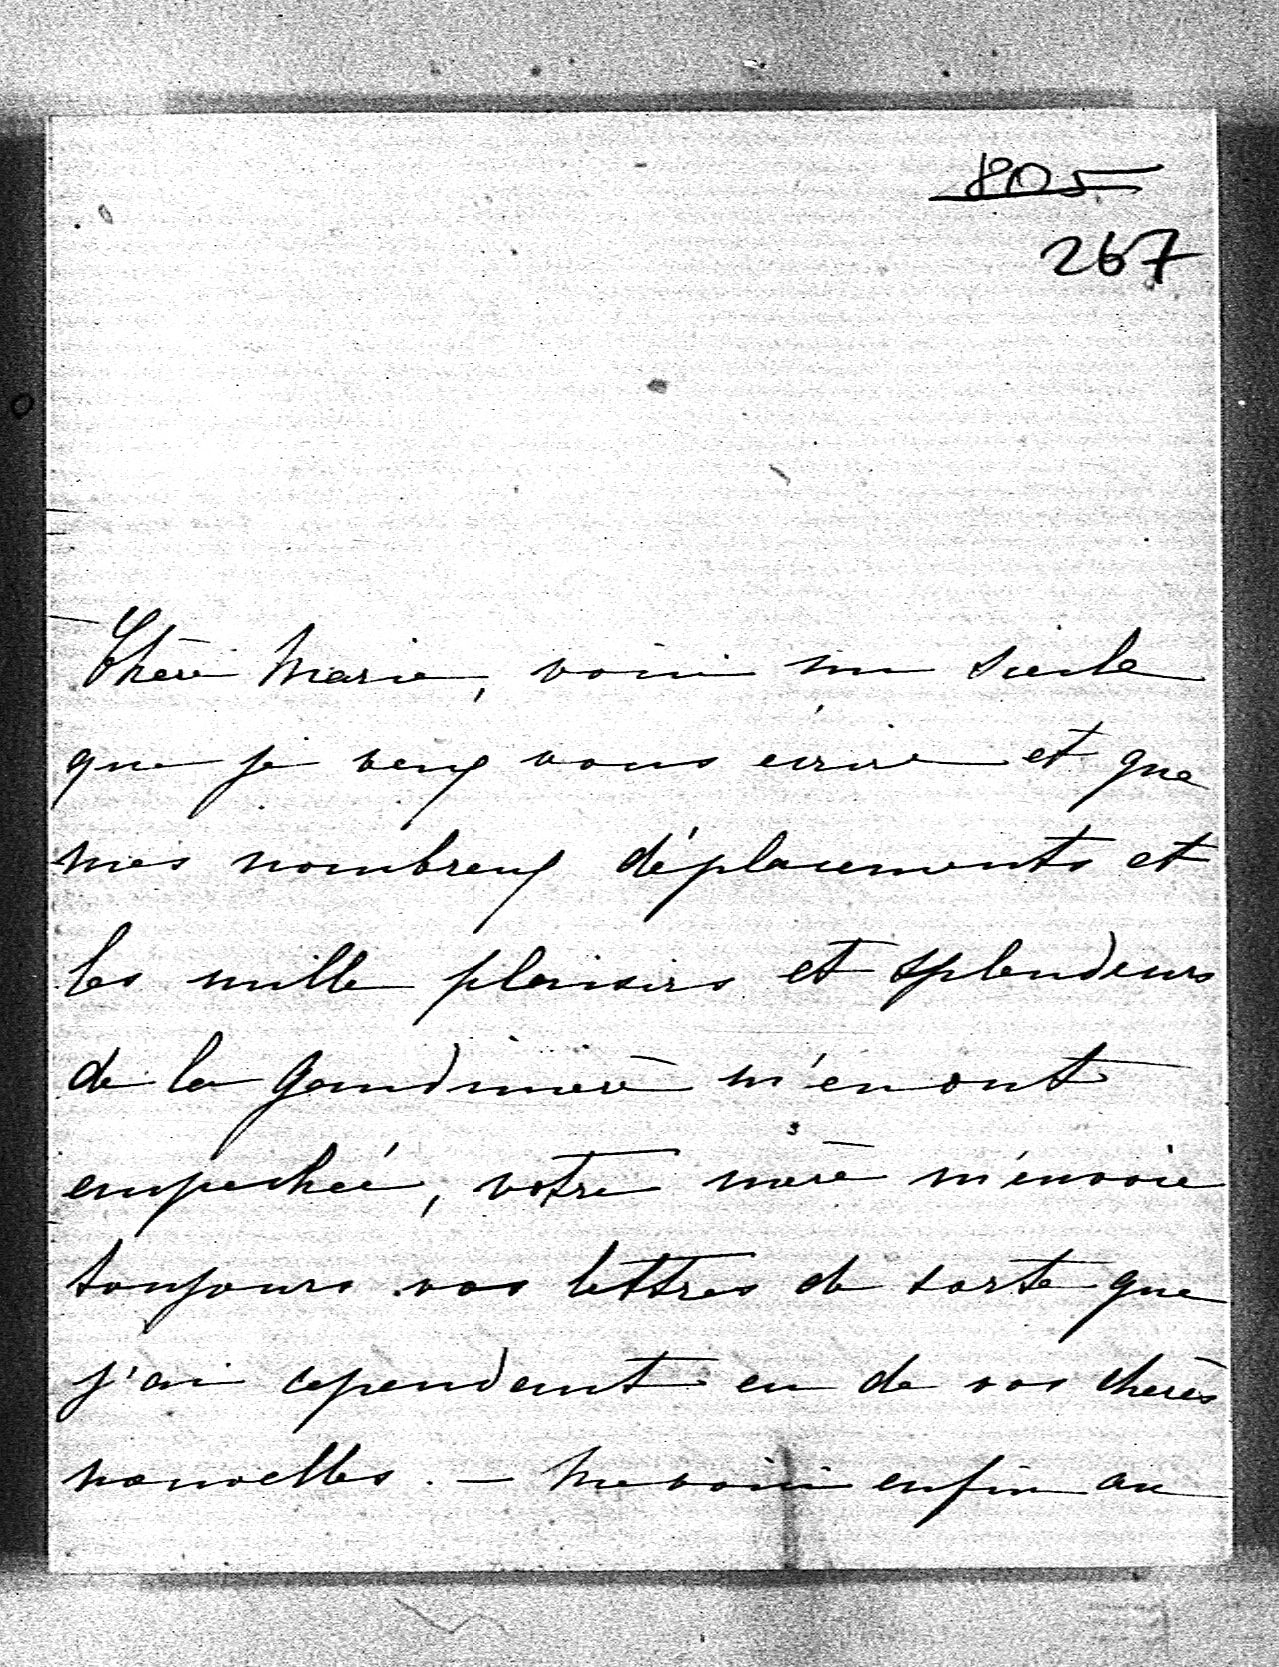 805
267
Chère Marie, voici un siècle
que je veux vous écrire et que
mes nombreux déplacements et
les mille plaisirs et splendeurs
de la Gaudinière m'en ont
empechée, votre mère m'envoie
toujours vos lettres de sorte que
j'ai cependant eu de vos chères
nouvelles. – Me voici enfin au